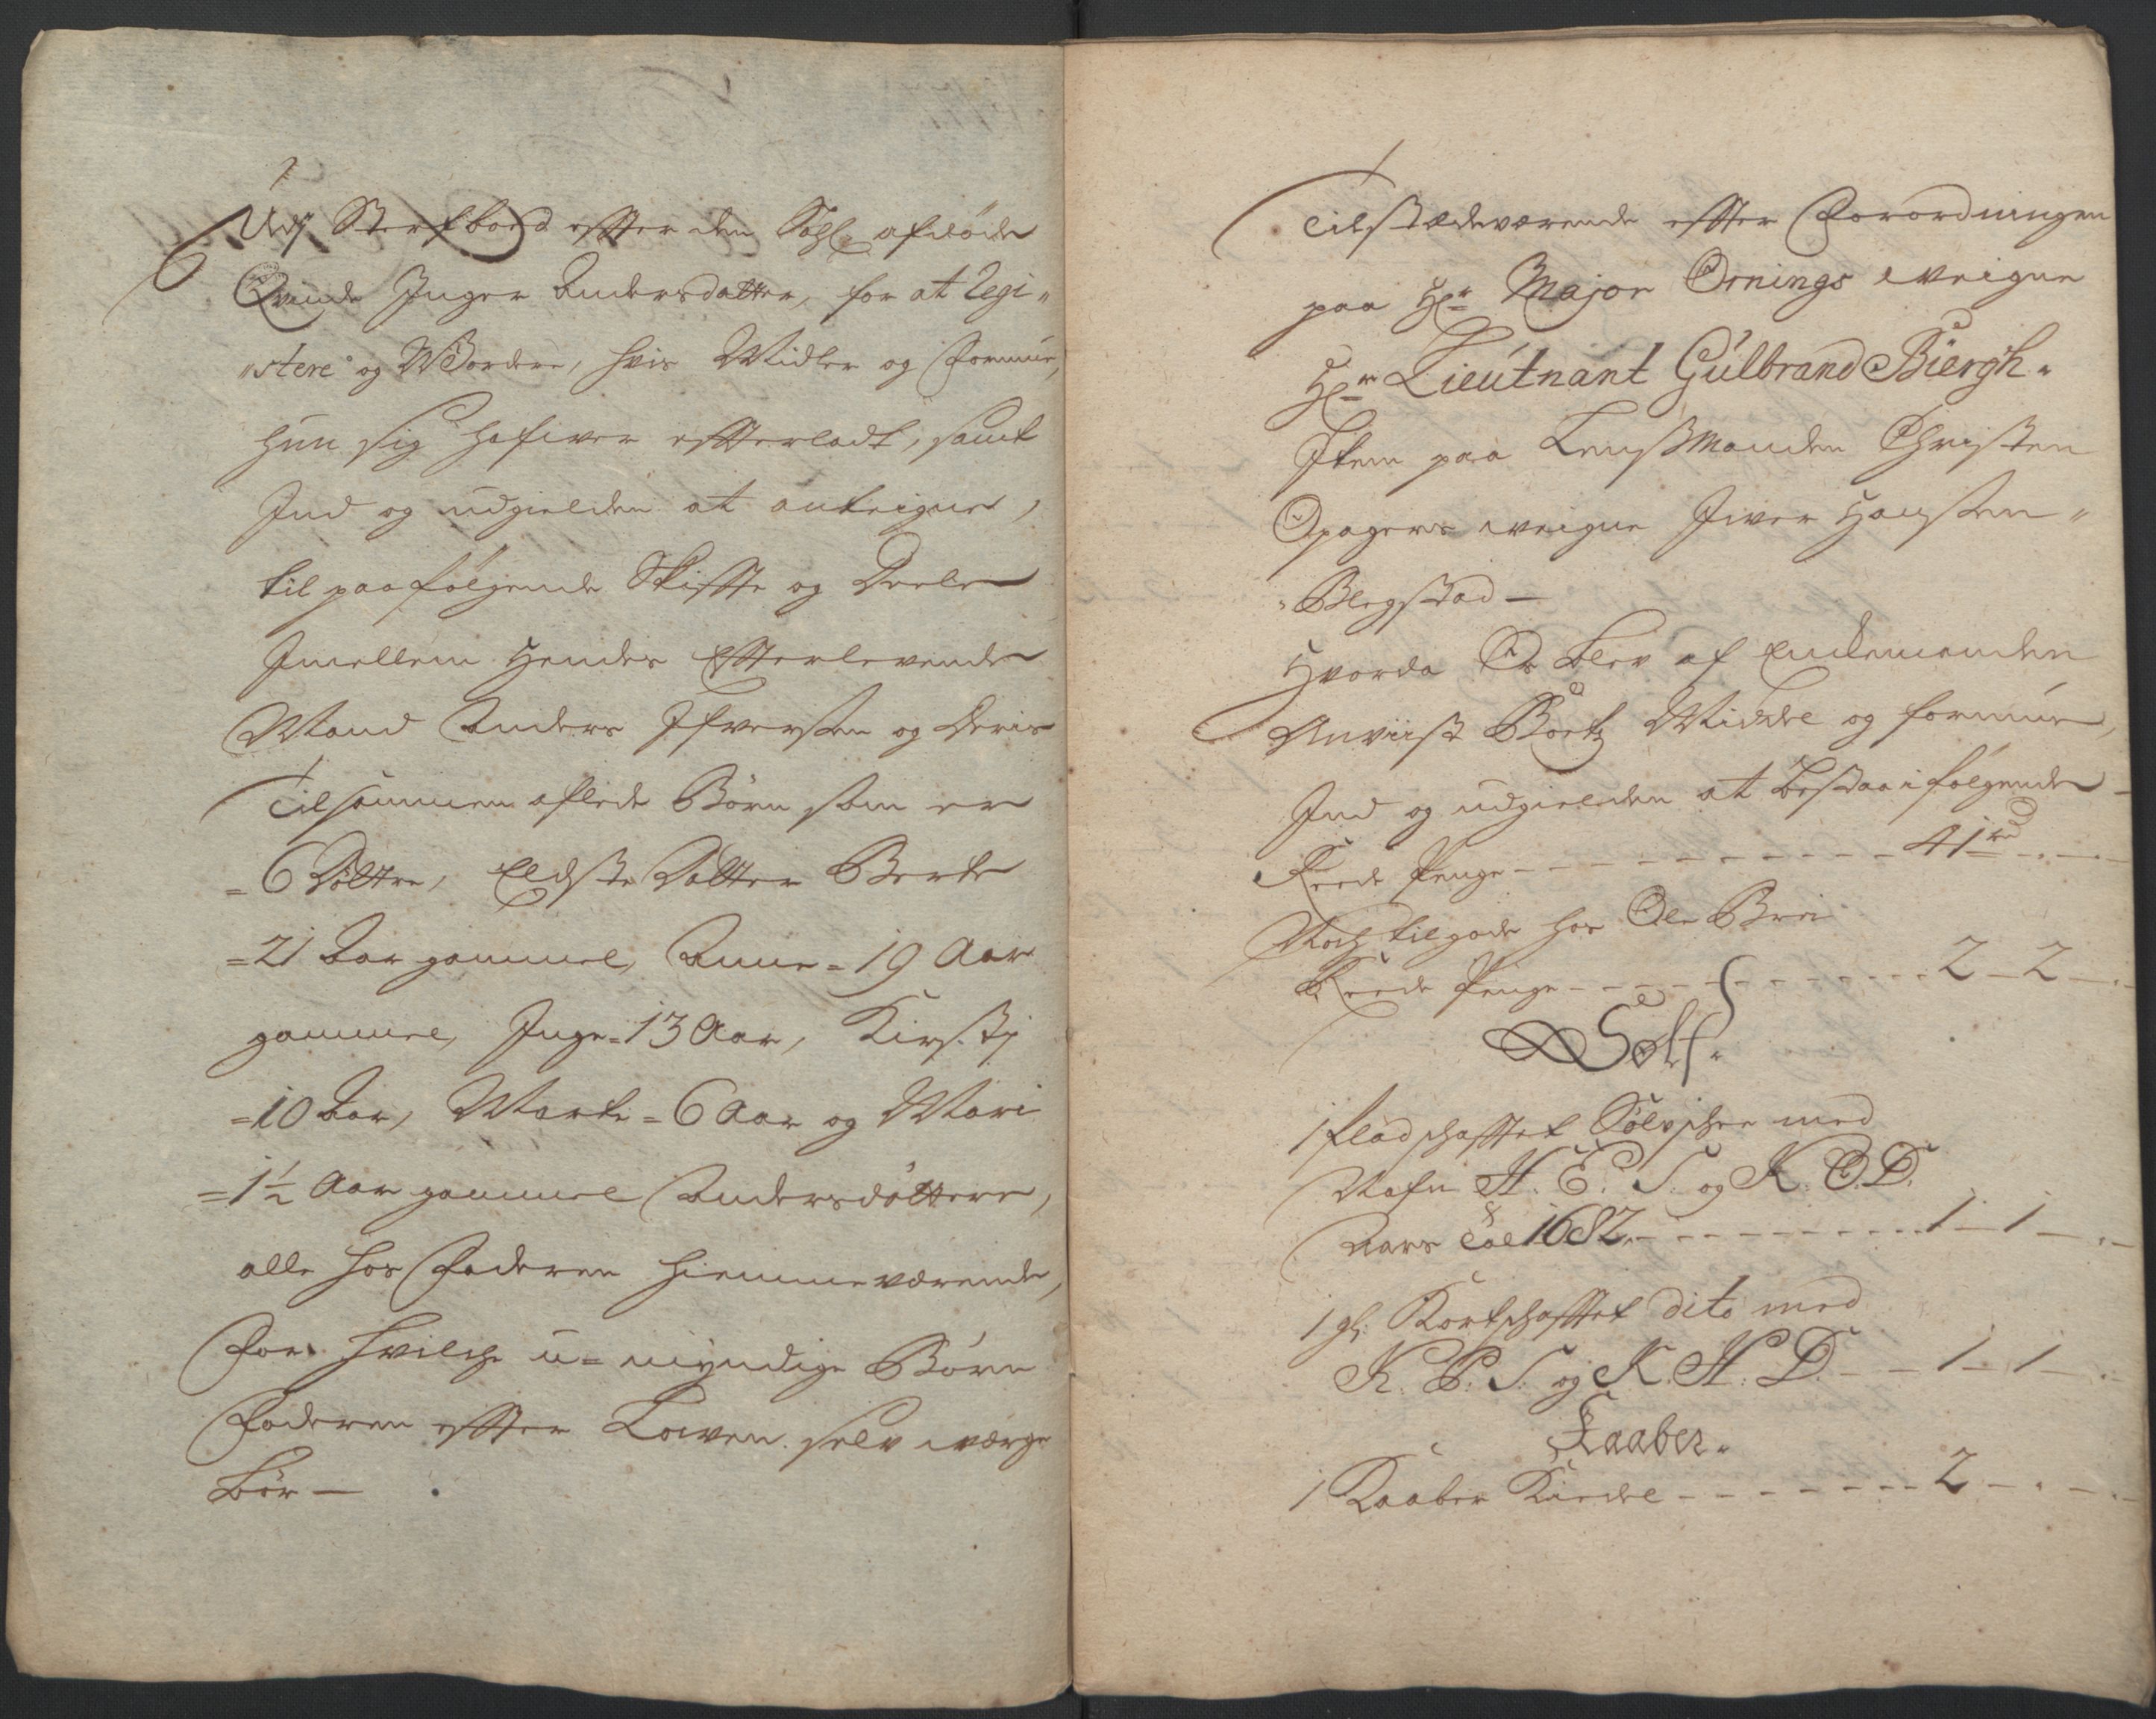 Udj Sterfboed efter den Sahl: afdöde
Qvinde Inger Andersdatter, for at Regi„
„stere og Wordere, hvis Midler og Formue,
hun sig hafver efterladt, samt
Ind og udgielden at anteigne,
til paafölgende Skiffte og Deele
Imellem Hendes Efterlevende
Mand Anders Ifversen og Deris
Tilsammen aflede Börn som er
=6 Döttre, Eldste Datter Berte
=21 Aar gammel, Anne=19 Aar
gammel, Inge=13 Aar, Kirstj
=10 Aar, Marte=6 Aar og Mari
=1½ Aar gammel Andersdöttere,
alle hos Faderen hiemmeværende,
for hvilche u=myndige Börn
Faderen efter Lowen self værge
bör —
Tilstædeværende efter Forordningen
paa Hr Major Ornings veigne
Hr Lieutnant Gulbrand Biergh.
Item paa Lensmanden Christen
Opagers veigne Iver Hansen
Blegstad —
Hvorda Os blev af Enckemanden
Anviist Boets Middel og formue,
Ind og udgielden at bestaa i fölgende
Reede Penge - - - 41 rd - . -
Noch tilgode hos Ole Brei
Reede Penge - - - 2 - 2 - .
Sölf.
1 flad schafftet Sölvschee med
Nafn H. E. S. og K. O. D.
Aars Tal 1682 - - - 1 - 1 - .
1 gl: Kortschafftet dito med
K. P. S. og K. H. D. - 1 - 1 - .
Kaaber.
1 Kaaber Kiedel - - - 2 - . - .